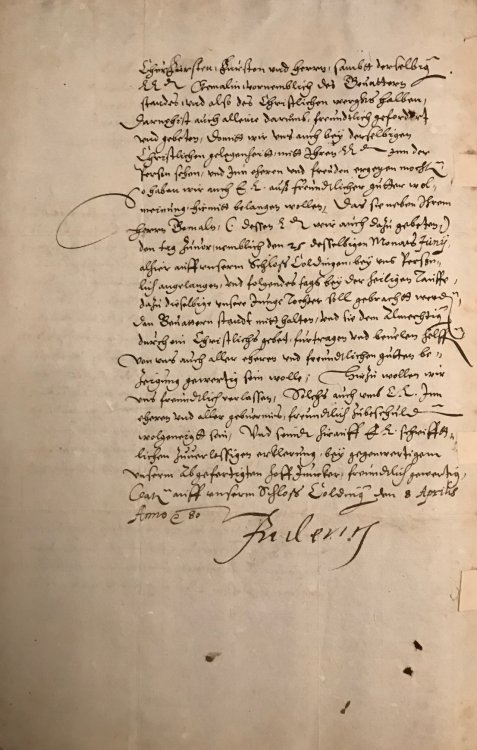 Churfursten, Fursten vnd Herrn, sambtt derselbig
Gemalin, vornemblich des Geuattern
standes, vnd also des Christlichen wergks halben,
auch alleine darumb, freundtlich gefordert
vnd gebeten, Domitt wir vns auch bey derselbigen
Christlichen gelegenheitt, mitt Ihren inn der
Person sehen, vnd Inn eheren vnd freuden ergezen mochtt
So haben wir auch E. L. auß freundtlicher gutter wol-
meinung hiemitt belangen wollen, Das sie neben Ihrem
Herrn Gemaln, (dessen L. wir auch dazu gebeten)
den tag zuuor, nemblich den 25 desselbigen Monats Juny,
alhier auff vnserm Schloss Coldingen, bey vns Persön-
lich angelangen, vnd folgendes tags bey der heiligen Tauffe
dazu dieselbige vnsere Junge tochter soll gebracht werd
Den Geuattern standt mitt halten, vnd sie dem Almechtig
durch ein Christlichs gebet, furtragen vnd beuelen helff
Von vns auch aller eheren vnd freundtlichen gutten be-
zeigung gewertig sein wolle, Hiezu wollen wir
vns freundtlich verlassen, Solchs auch vmb E. L. Inn
eheren vnd aller gebuernus, freundtlich zubeschuld
wolgeneigtt sein, Vnd seindt hierauff E. L. schrifft-
lichen zuuerlessigen erklerung, bey gegenwertigem
vnserm abgefertigten Hoff Juncker, freundtlich gewertig,
Datum auff vnserm Schloss Colding den 8 Aprilis
Anno 80
Friderich